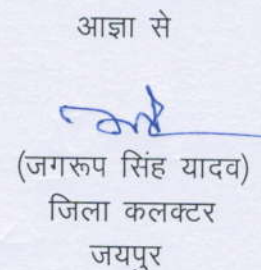 आज्ञा से
(जगरूप सिंह यादव)
जिला कलक्टर
जयपुर